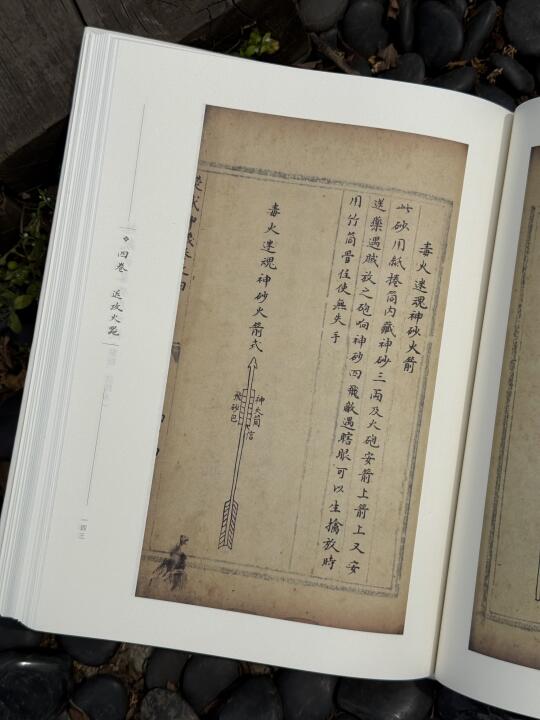 毒火迷魂神砂火箭
此砂用紙捲筒内藏神砂三兩及火砲安箭上箭上又安
送藥遇賊放之砲响神砂四飛敵遇瞎眼可以生擒放時
用竹筒晋住使無失手
毒火迷魂神砂火箭式
神火筒
信
飛砂包
四卷 追攻火
一四三